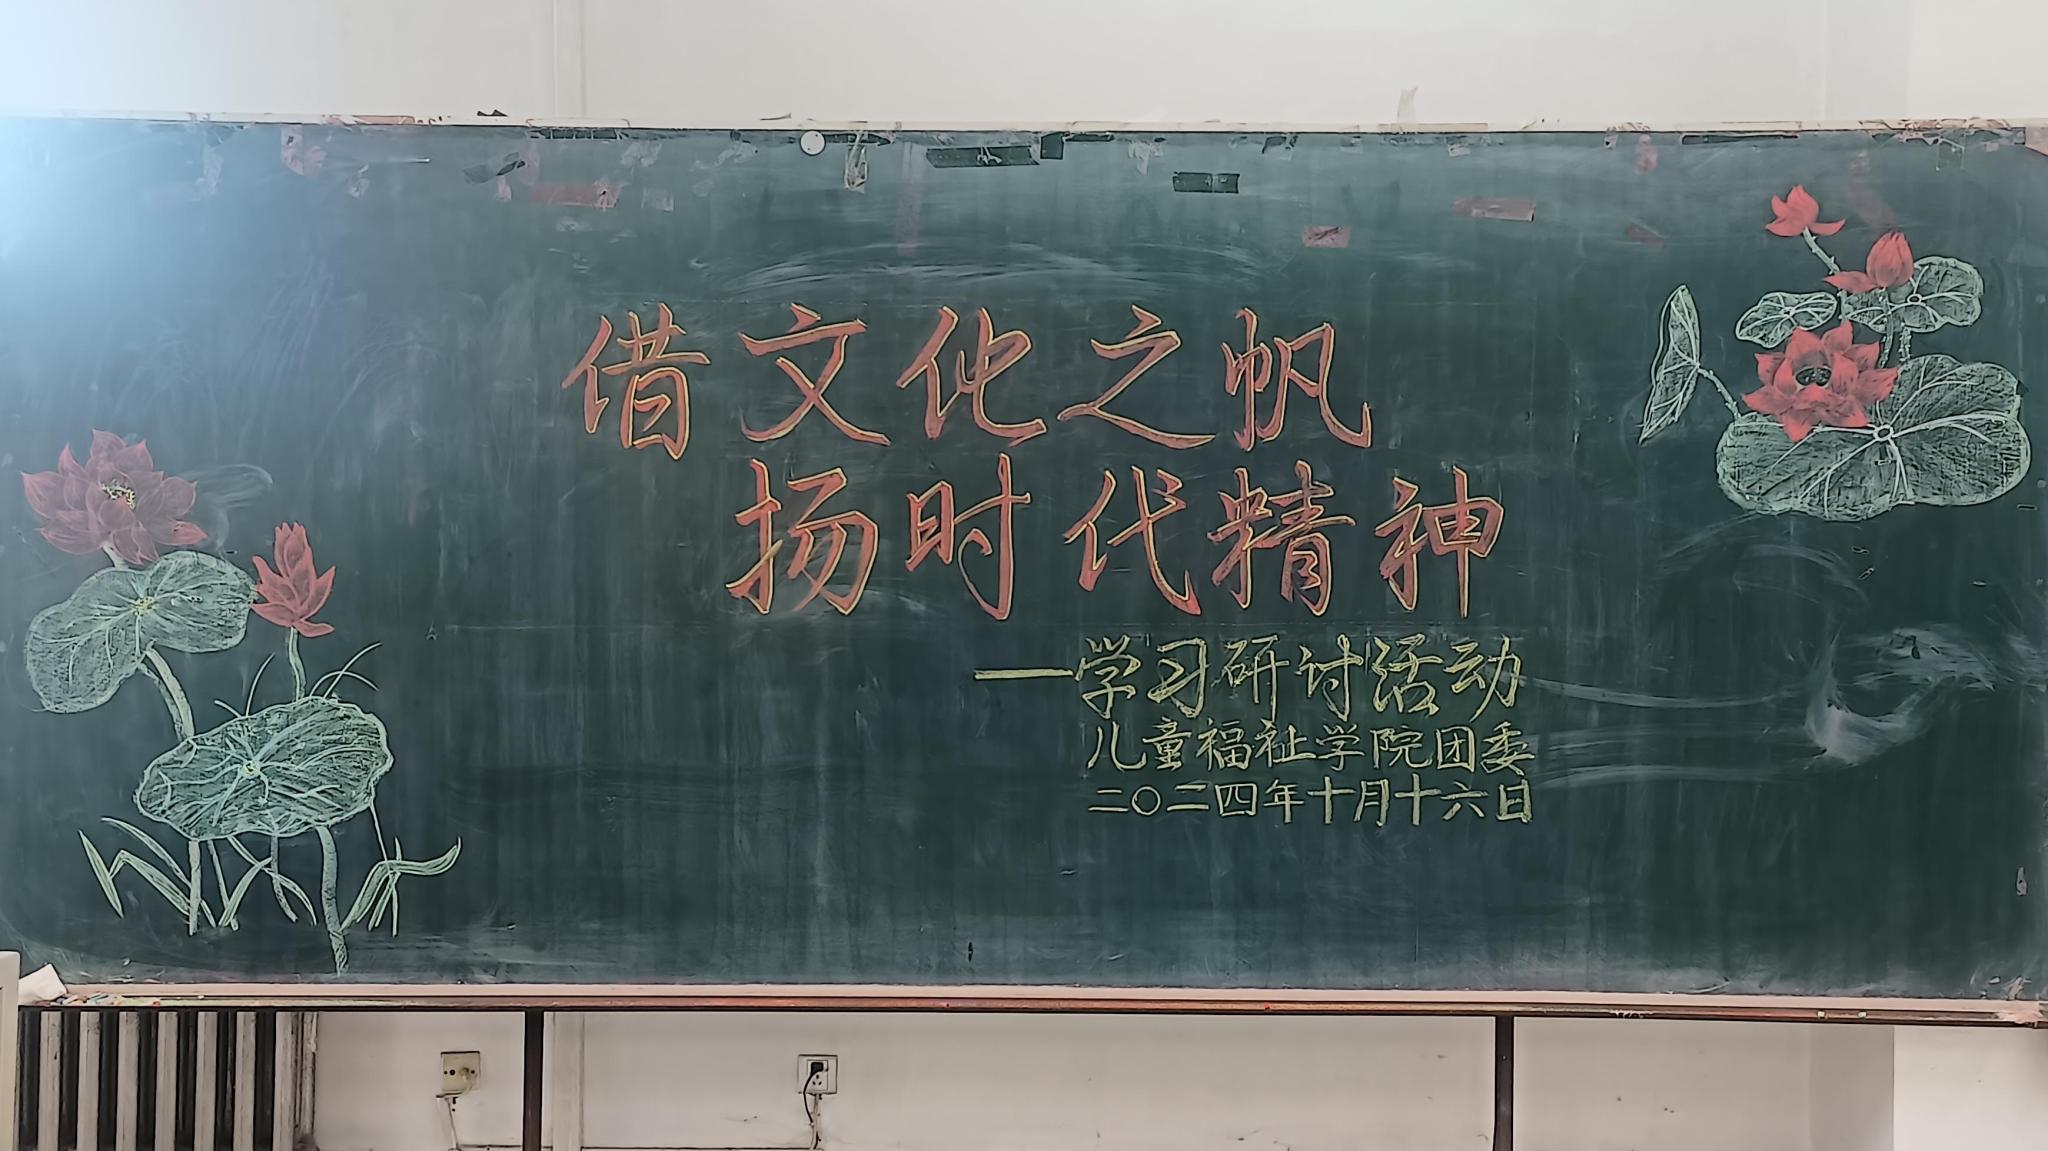 借文化之帆
扬时代精神
—学习研讨活动
儿童福祉学院团委
二〇二四年十月十六日